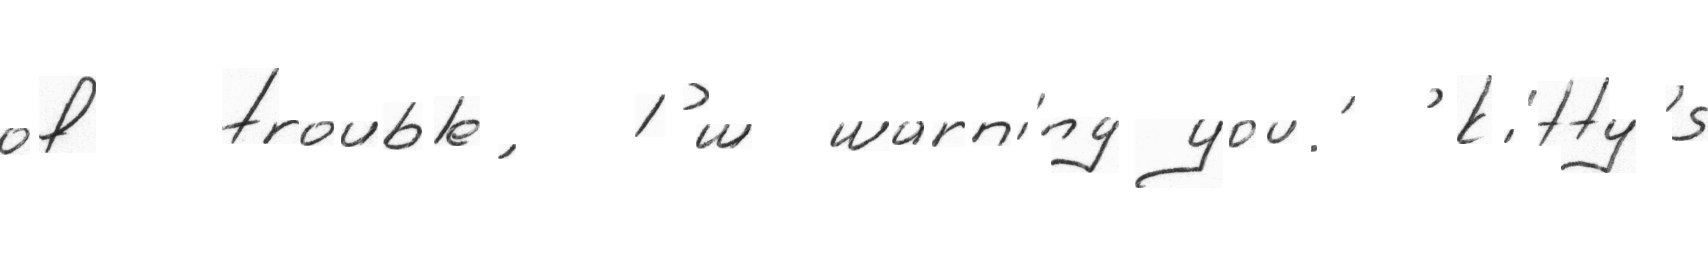 of trouble, I'm warning you.' 'kitty's